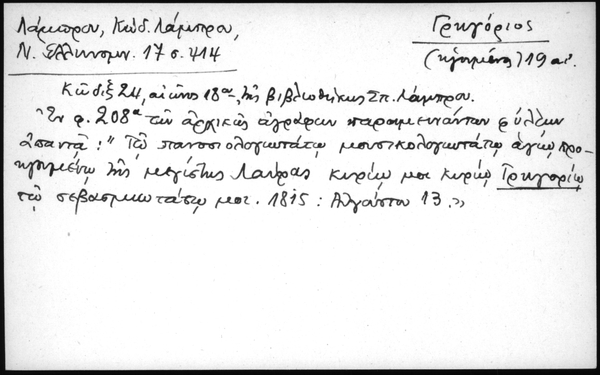 Λάμπρου, Κώδ. Λάμπρου,
Ν. Ἑλληνομν. 17 σ. 414
Γρηγόριος
(ἡγούμενος) 19 αἰ.
Κῶδιξ 24, αἰῶνος 18ου, τῆς βιβλιοθήκης Σπ. Λάμπρου.
Ἐν φ. 208α τῶν ἀρχικῶς ἀγράφων παραμεινάντων φύλλων
ἀπαντᾷ: "Τῷ πανοσιολογωτάτῳ μουσικολογιωτάτῳ ἁγίῳ προ-
ηγουμένῳ τῆς μεγίστης Λαύρας κυρίῳ μοι κυρίῳ Γρηγορίῳ
τῷ σεβασμιωτάτῳ μοι. 1815: Αὐγούστου 13.»